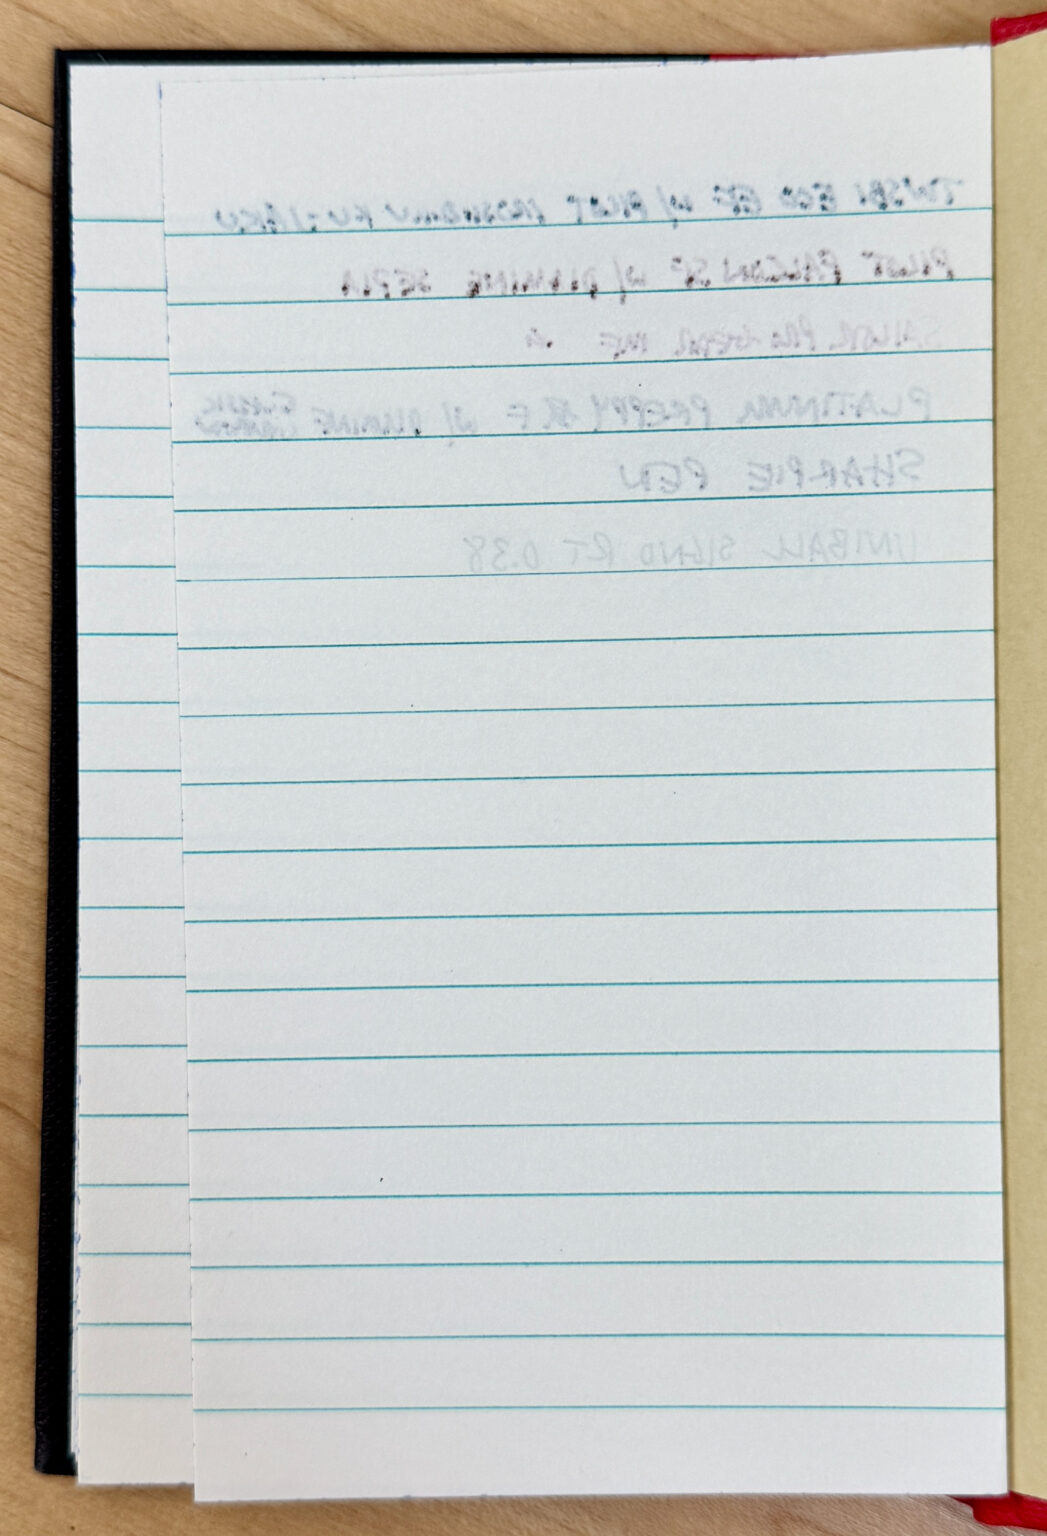 TWSBI ECO EF w/ PILOT IROSHIZUKU KU-JAKU
PILOT FALCON SF w/ DIAMINE SEPIA
SAILOR PRO-GEAR MF
PLATINUM PREPPY F w/ DIAMINE CLASSIC
SHARPIE PEN
UNIBALL SIGNO RT 0.38